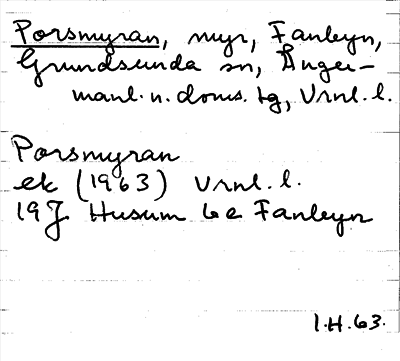 Porsmyran, myr, Fanbyn,
Grundsunda sn, Ånger-
manl. n. doms. tg, Vrnl. l.
Porsmyran
ek (1963) Vrnl. l.
19J Husum be Fanbyn
I.H.63.